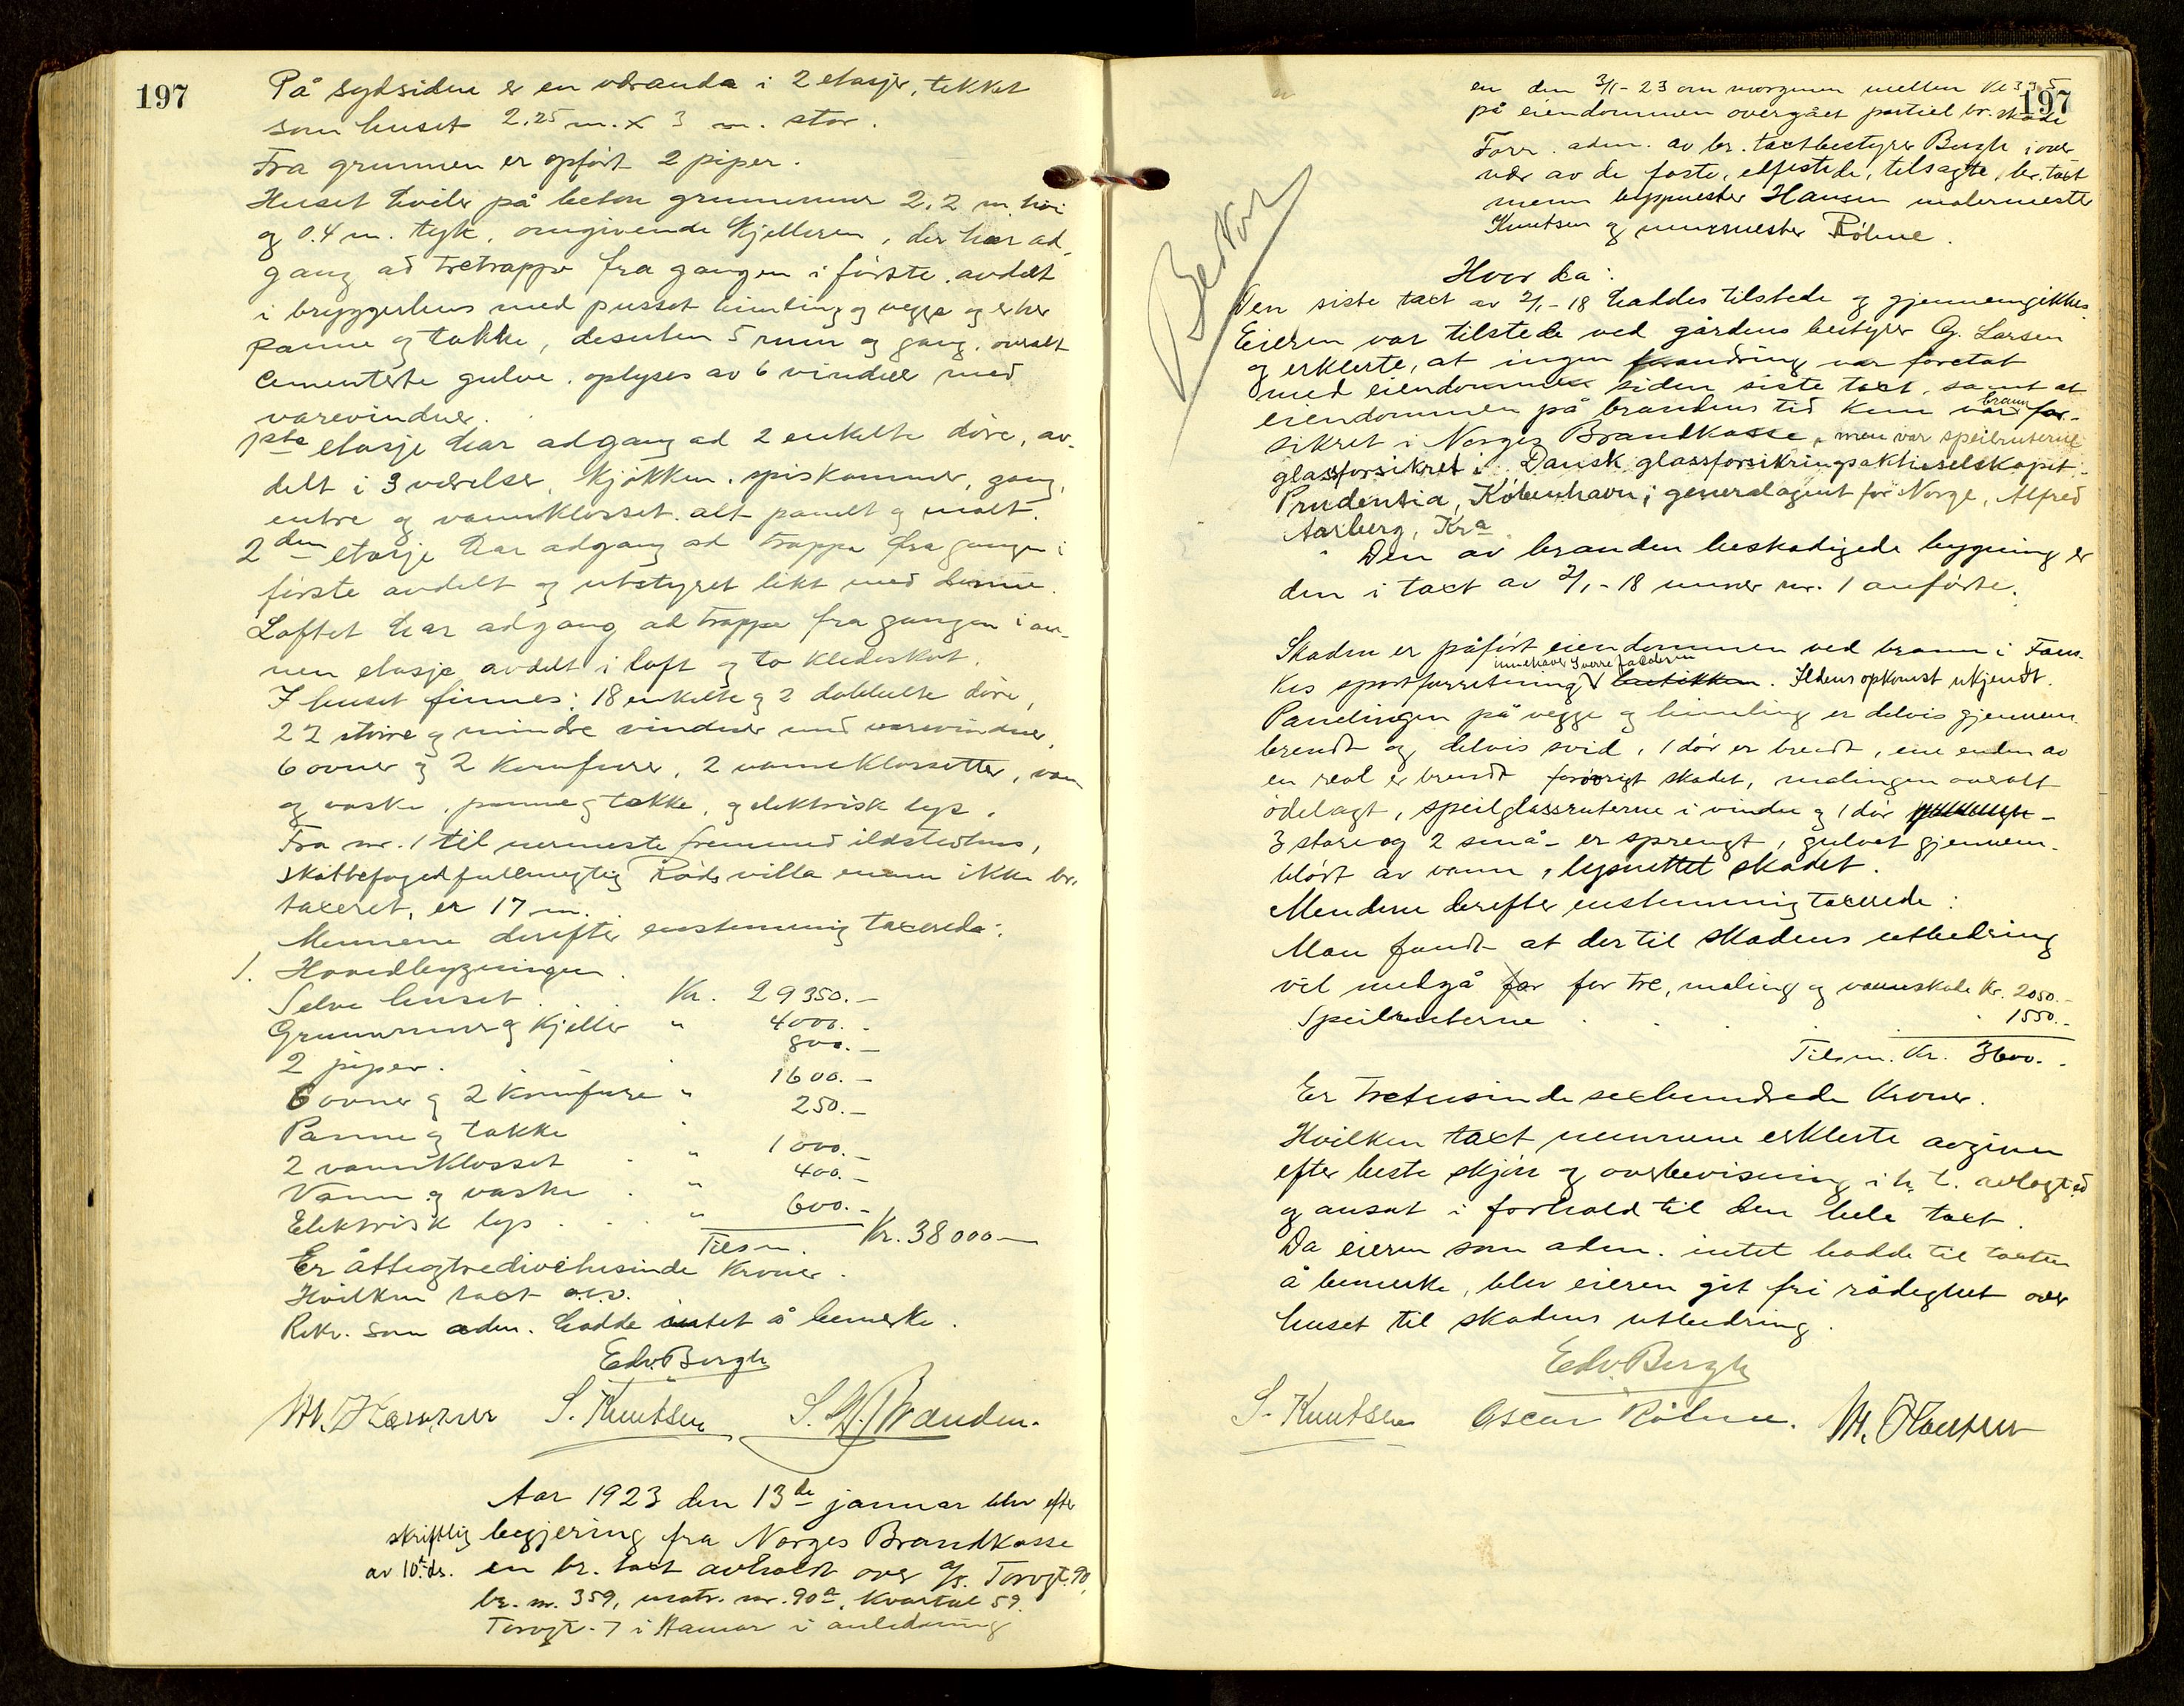 197
På sydsiden er en veranda i 2 etasjer, tekket
som huset 2.25 m. x 3 m. stor.
Fra grunnen er opført 2 piper.
Huset hviler på beton grunnmur 2,2 m. høi
og 0.4 m. tyk, omgivende kjelleren, der har ad-
gang ad tretrappe fra gangen i første, avdelt
i bryggerhus med pusset himling og vegge og er her
panne og takke, desuten 5 rum og gang, overalt
cementerte gulve, oplyses av 6 vinduer med
varevinduer.
1ste etasje har adgang ad 2 enkelte døre, av-
delt i 3 værelser, kjøkken, spiskammer, gang,
entre og vannklosset. alt panelt og malt.
2den etasje har adgang ad trappe fra gangen i
første avdelt og utstyret likt med denne.
Loftet har adgang ad trappe fra gangen i an-
nen etasje avdelt i loft og to kledeskot.
I huset finnes: 18 enkelte og 2 dobbelte døre,
22 større og mindre vinduer med varevinduer,
6 ovner og 2 komfurer, 2 vannklossetter, vann
og vaske, panne og takke, og elektrisk lys.
Fra nr. 1 til nermeste fremmed ildstedhus,
skattefogedfullmegtig Røds villa ennu ikke br.
taxeret, er 17 m.
Mennene derefter enstemmig taxerede:
1. Hovedbygningen.
Selve huset . . . Kr. 29350.-
Grunnmur og kjeller " 4000.-
2 piper. " 800.-
6 ovner og 2 komfure " 1600.-
Panne og takke " 250.-
2 vannklosset . " 1000.-
Vann og vaske . " 400.-
Elektrisk lys . . . " 600.-
Tilsm. Kr. 38000-
Er åtteogtredivetusinde Kroner.
Hvilken taxt o.s.v.
Rekv. som adm. hadde intet å bemerke.
Edv. Bergh
M. Hansen S. Knutsen
Aar 1923 den 13de januar blev efter
skriftlig begjering fra Norges Brandkasse
av 10de ds. en br. taxt avholdt over a/s. Torvgt. 90,
br. nr. 359, matr. nr. 90a, kvartal 59.
Torvgt. 7 i Hamar i anledning
197
en den 3/1-23 om morgenen mellem kl 3
på eiendommen overgået partiel br. skade
Forr. adm. av br. taxtbestyrer Bergh i over
vær av de faste, edfestede, tilsagte, br. taxt
menn byggmester Hansen malermester
Knutsen og murmester Røhne.
Hvor da:
Den siste taxt av 2/1-18 haddes tilstede og gjennemgikkes.
Eieren var tilstede ved gårdens bestyrer G. Larsen
og erklerte, at ingen forandring var foretat
med eiendommen siden siste taxt, samt at
eiendommen på brandens tid kun var brann for-
sikret i Norges Brandkasse, men var speilruterne
glassforsikret i Dansk glassforsikringsaktieselskapet
Prudentia, København; generalagent for Norge, Alfred
Aarberg, Kra
Den av branden beskadigede bygning er
den i taxt av 2/1-18 unner nr. 1 anførte.
Skaden er påført eiendommen ved brann i Fans-
kes sportforretning innehaver Sverre butikken. Ildens opkomst ukjendt.
Panelingen på vegge og himling er delvis gjennem-
brendt og delvis svid, 1 dør er brendt, ene enden av
en reol er brendt forøvrigt skadet, malingen overalt
ødelagt, speilglassruterne i vindu og 1 dør -
3 store og 2 små - er sprengt, gulvet gjennem-
bløt av vann, lysnettet skadet.
Mendene derefter enstemmig taxerede:
Man fandt at der til skadens utbedring
vil medgå for for tre, maling og vannskade Kr. 2050.-
Speilruterne . . . . 1550.-
Tilsm. Kr. 3600.-
Er Tretusinde sexhundrede Kroner.
Hvilken taxt mennene erklerte avgiven
efter beste skjøn og overbevisning i h. t. avlagt ed
og ansat i forhold til den hele taxt.
Da eieren som adm. intet hadde til taxten
å bemerke, blev eieren git fri rådighet over
huset til skadens utbedring.
Edv. Bergh
S. Knutsen Oscar Røhne. M. Hansen